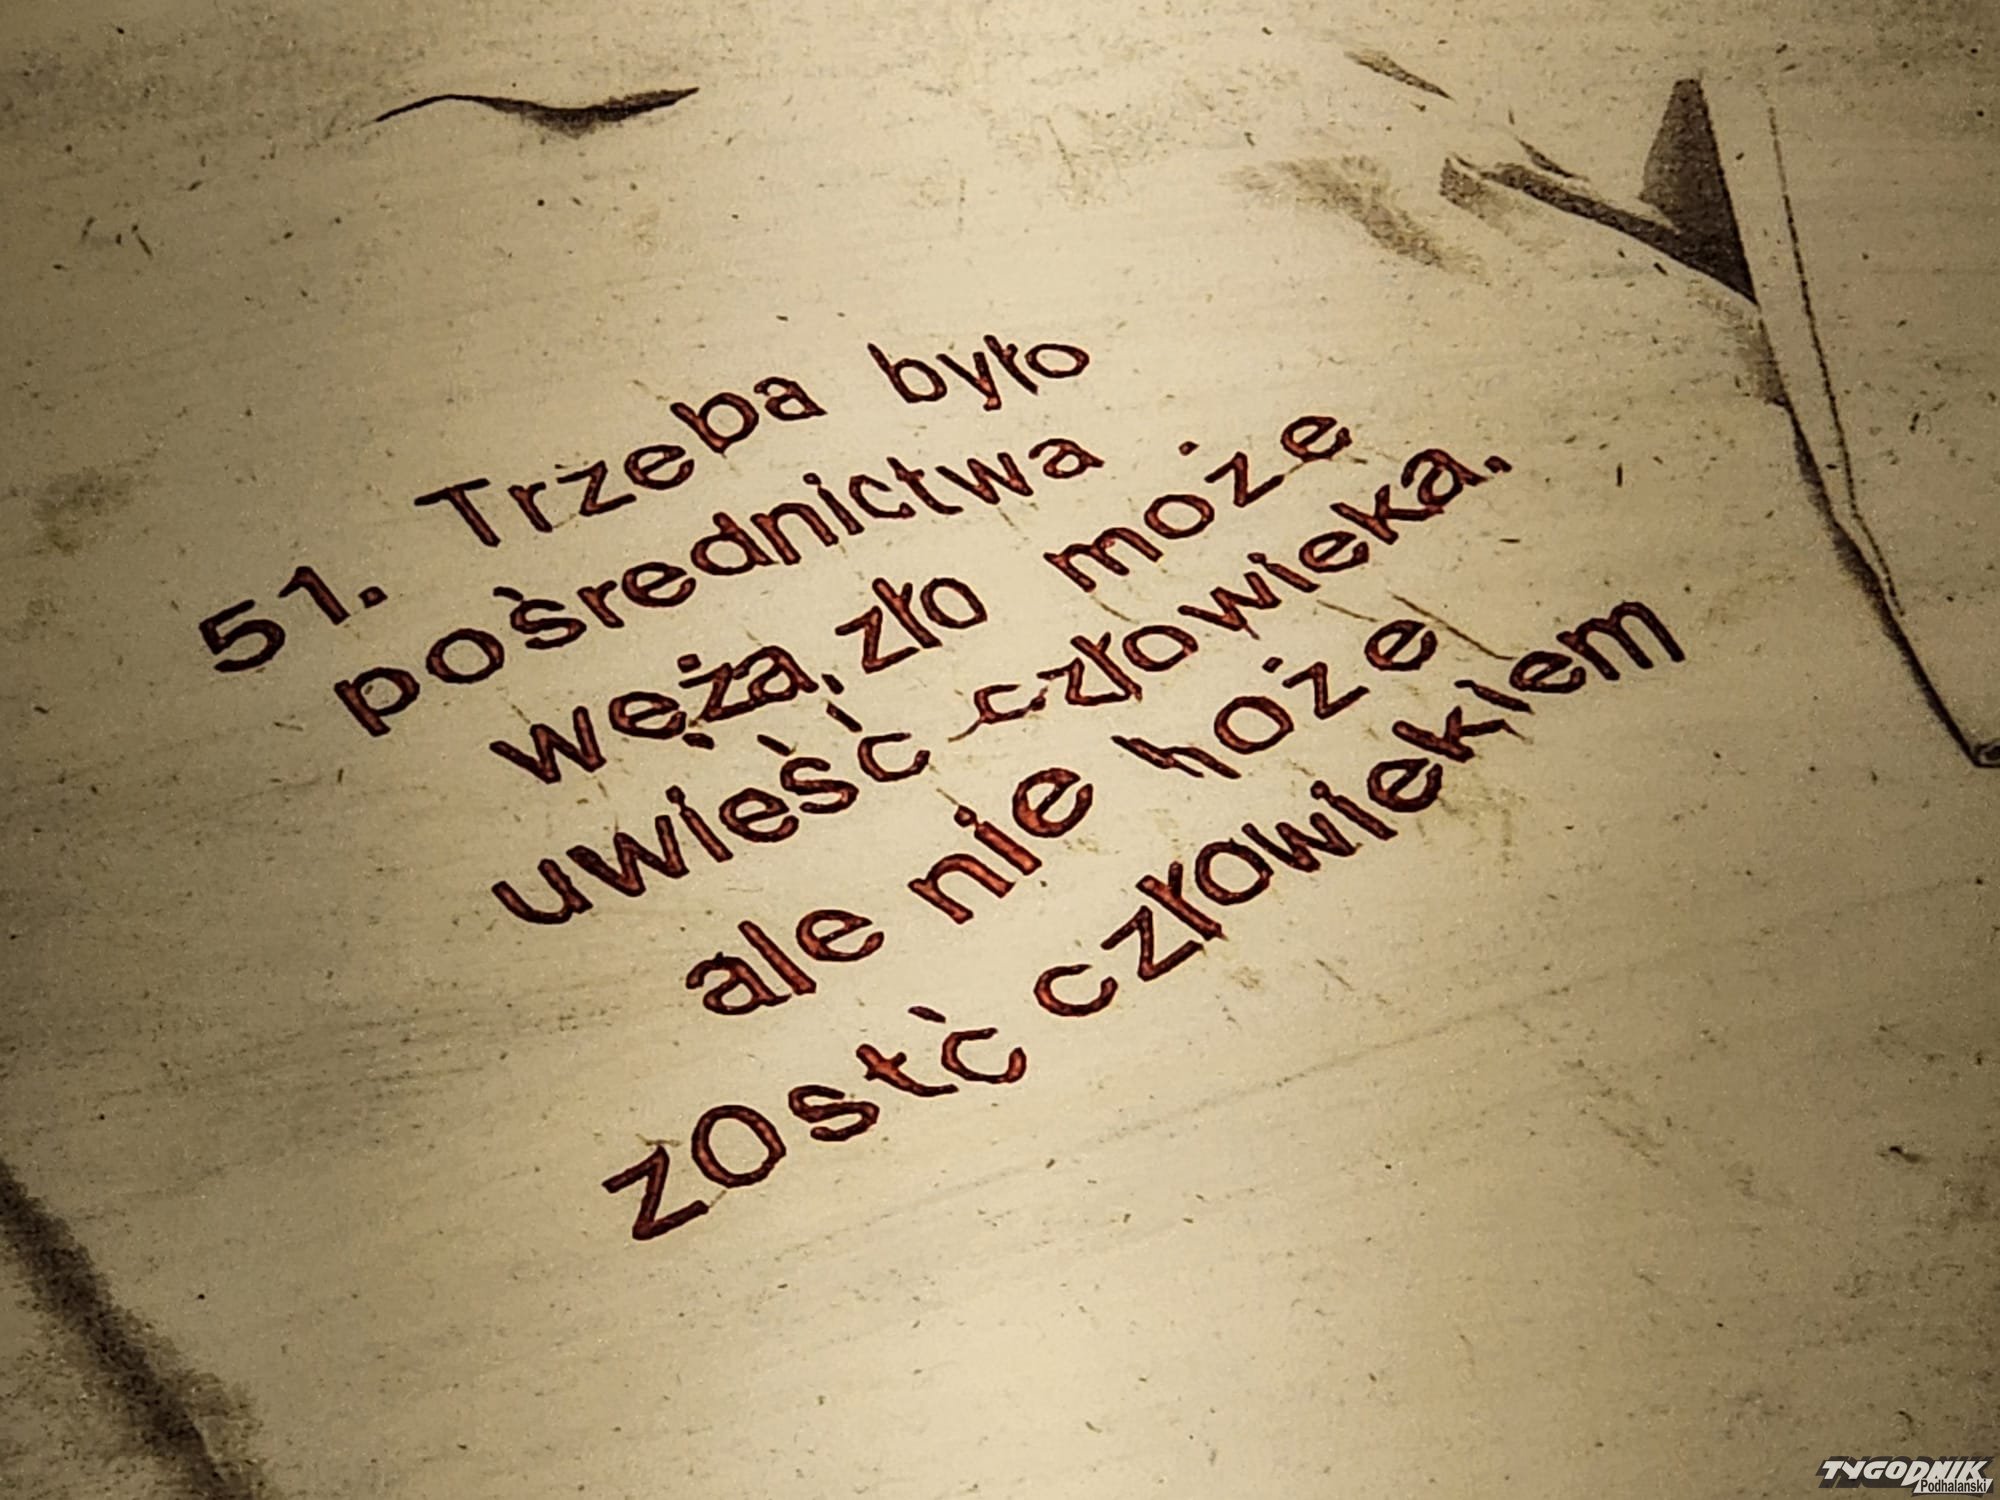 51. Trzeba było
pośrednictwa
węża, zło może
uwieść człowieka.
ale nie może
zostć człowiekiem
TYGODNIK
Podhalański